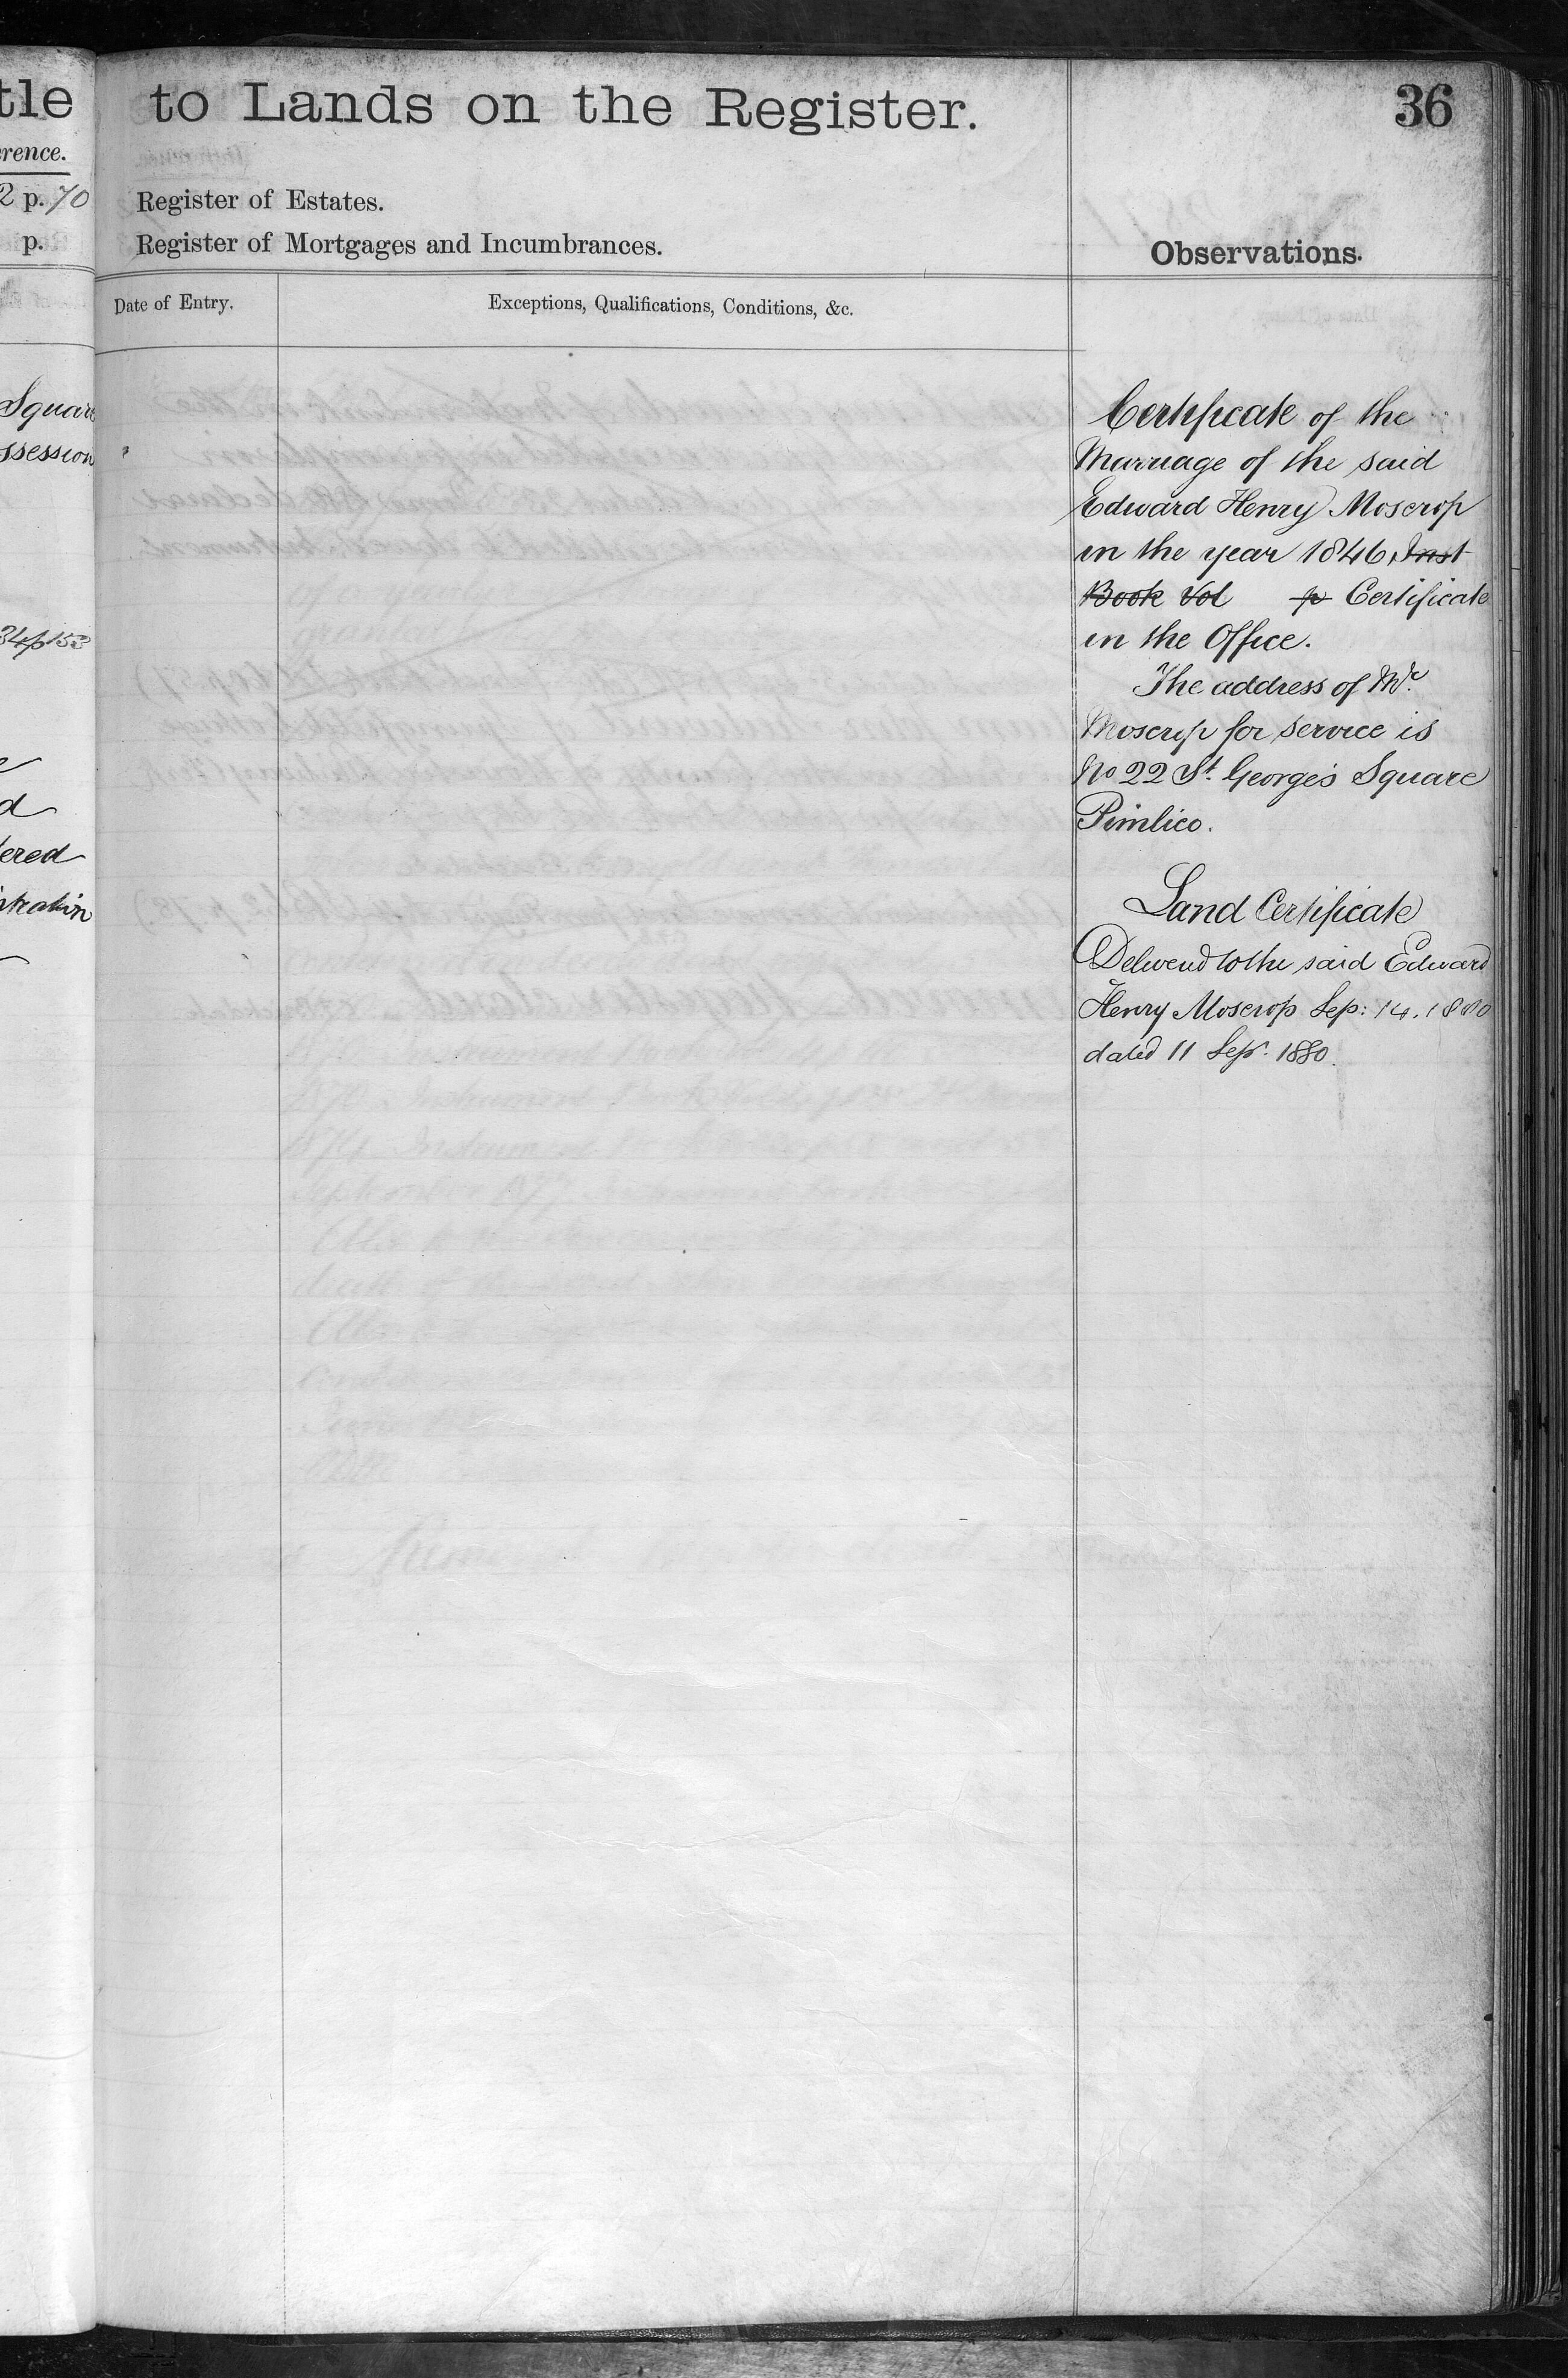 tle
rence.
2 p. 70
p.
Square
ssession
34p153
d
ered
stration
to Lands on the Register.
36
Register of Estates.
Register of Mortgages and Incumbrances.
Observations.
Date of Entry.
Exceptions, Qualifications, Conditions, &c.
Certificate of the
Marriage of the said
Edward Henry Moscrop
in the year 1846, Inst
Book Vol p Certificate
in the Office.
The address of Mr.
Moscrop for service is
No 22 St. George's Square
Pimlico.
Land Certificate
Delivered to the said Edward
Henry Moscrop Sep: 14. 1880
dated 11 Sep. 1880.